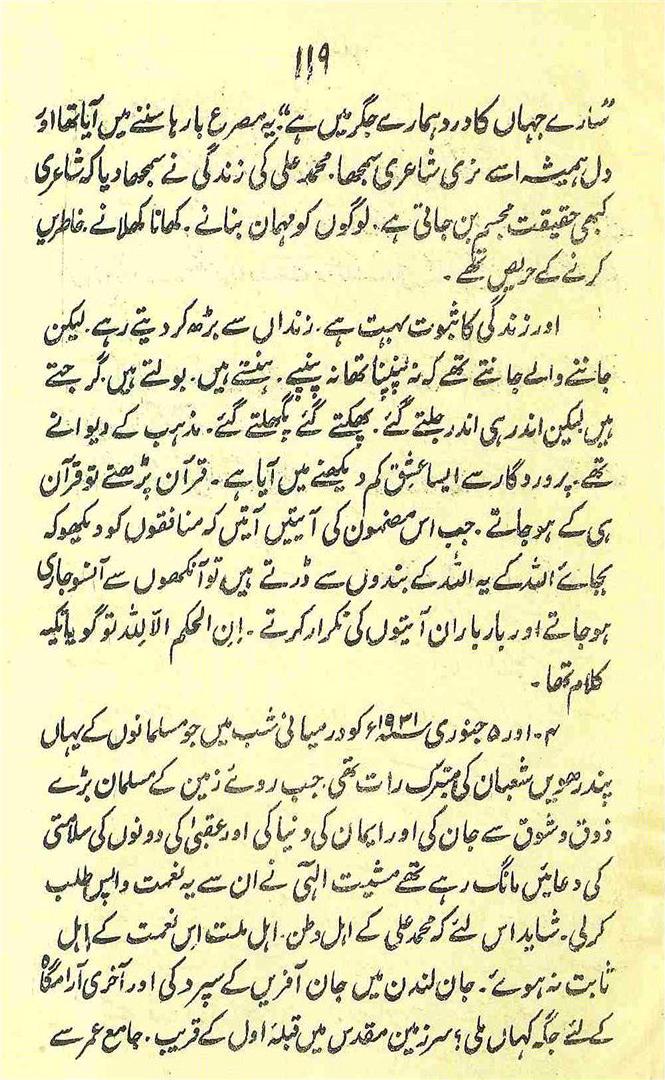 ۱۱۹
"سارے جہاں کا درد ہمارے جگر میں ہے" یہ مصرع بارہا سننے میں آیا تھا اور
دل ہمیشہ اسے نری شاعری سمجھا۔ محمد علی کی زندگی نے سمجھا دیا کہ شاعری
کبھی حقیقت مجسم بن جاتی ہے۔ لوگوں کو مہمان بنانے۔ کھانا کھلانے۔ خاطریں
کرنے کے حریص تھے۔
اور زندگی کا ثبوت بہت ہے۔ زنداں سے بڑھ کر دیتے رہے۔ لیکن
جاننے والے جانتے تھے کہ نہ پنپنا تھا نہ پنپے۔ ہنستے ہیں۔ بولتے ہیں۔ گرجتے
ہیں لیکن اندر ہی اندر جلتے گئے۔ پھکتے گئے پگھلتے گئے۔ مذہب کے دیوانے
تھے۔ پروردگار سے ایسا عشق کم دیکھنے میں آیا ہے۔ قرآن پڑھتے تو قرآن
ہی کے ہو جاتے۔ جب اس مضمون کی آیتیں آتیں کہ منافقوں کو دیکھو کہ
بجائے اللہ کے یہ اللہ کے بندوں سے ڈرتے ہیں تو آنکھوں سے آنسو جاری
ہو جاتے اور بار بار ان آیتوں کی تکرار کرتے۔ اِنِ الحکم الّا للہ تو گویا تکیہ
کلام تھا۔
۴۔ اور ۵ جنوری ۱۹۳۱ء کو درمیانی شب میں جو مسلمانوں کے یہاں
پندرھویں شعبان کی متبرک رات تھی۔ جب روئے زمین کے مسلمان بڑے
ذوق و شوق سے جان کی اور ایمان کی دنیا کی اور عقبیٰ کی دونوں کی سلامتی
کی دعائیں مانگ رہے تھے مشیت الٰہی نے ان سے یہ نعمت واپس طلب
کر لی۔ شاید اس لئے کہ محمد علی کے اہل وطن۔ اہل ملت اس نعمت کے اہل
ثابت نہ ہوئے۔ جان لندن میں جان آفریں کے سپرد کی اور آخری آرامگاہ
کے لئے جگہ کہاں ملی؟ سرزمین مقدس میں قبلۂ اول کے قریب۔ جامع عمر سے